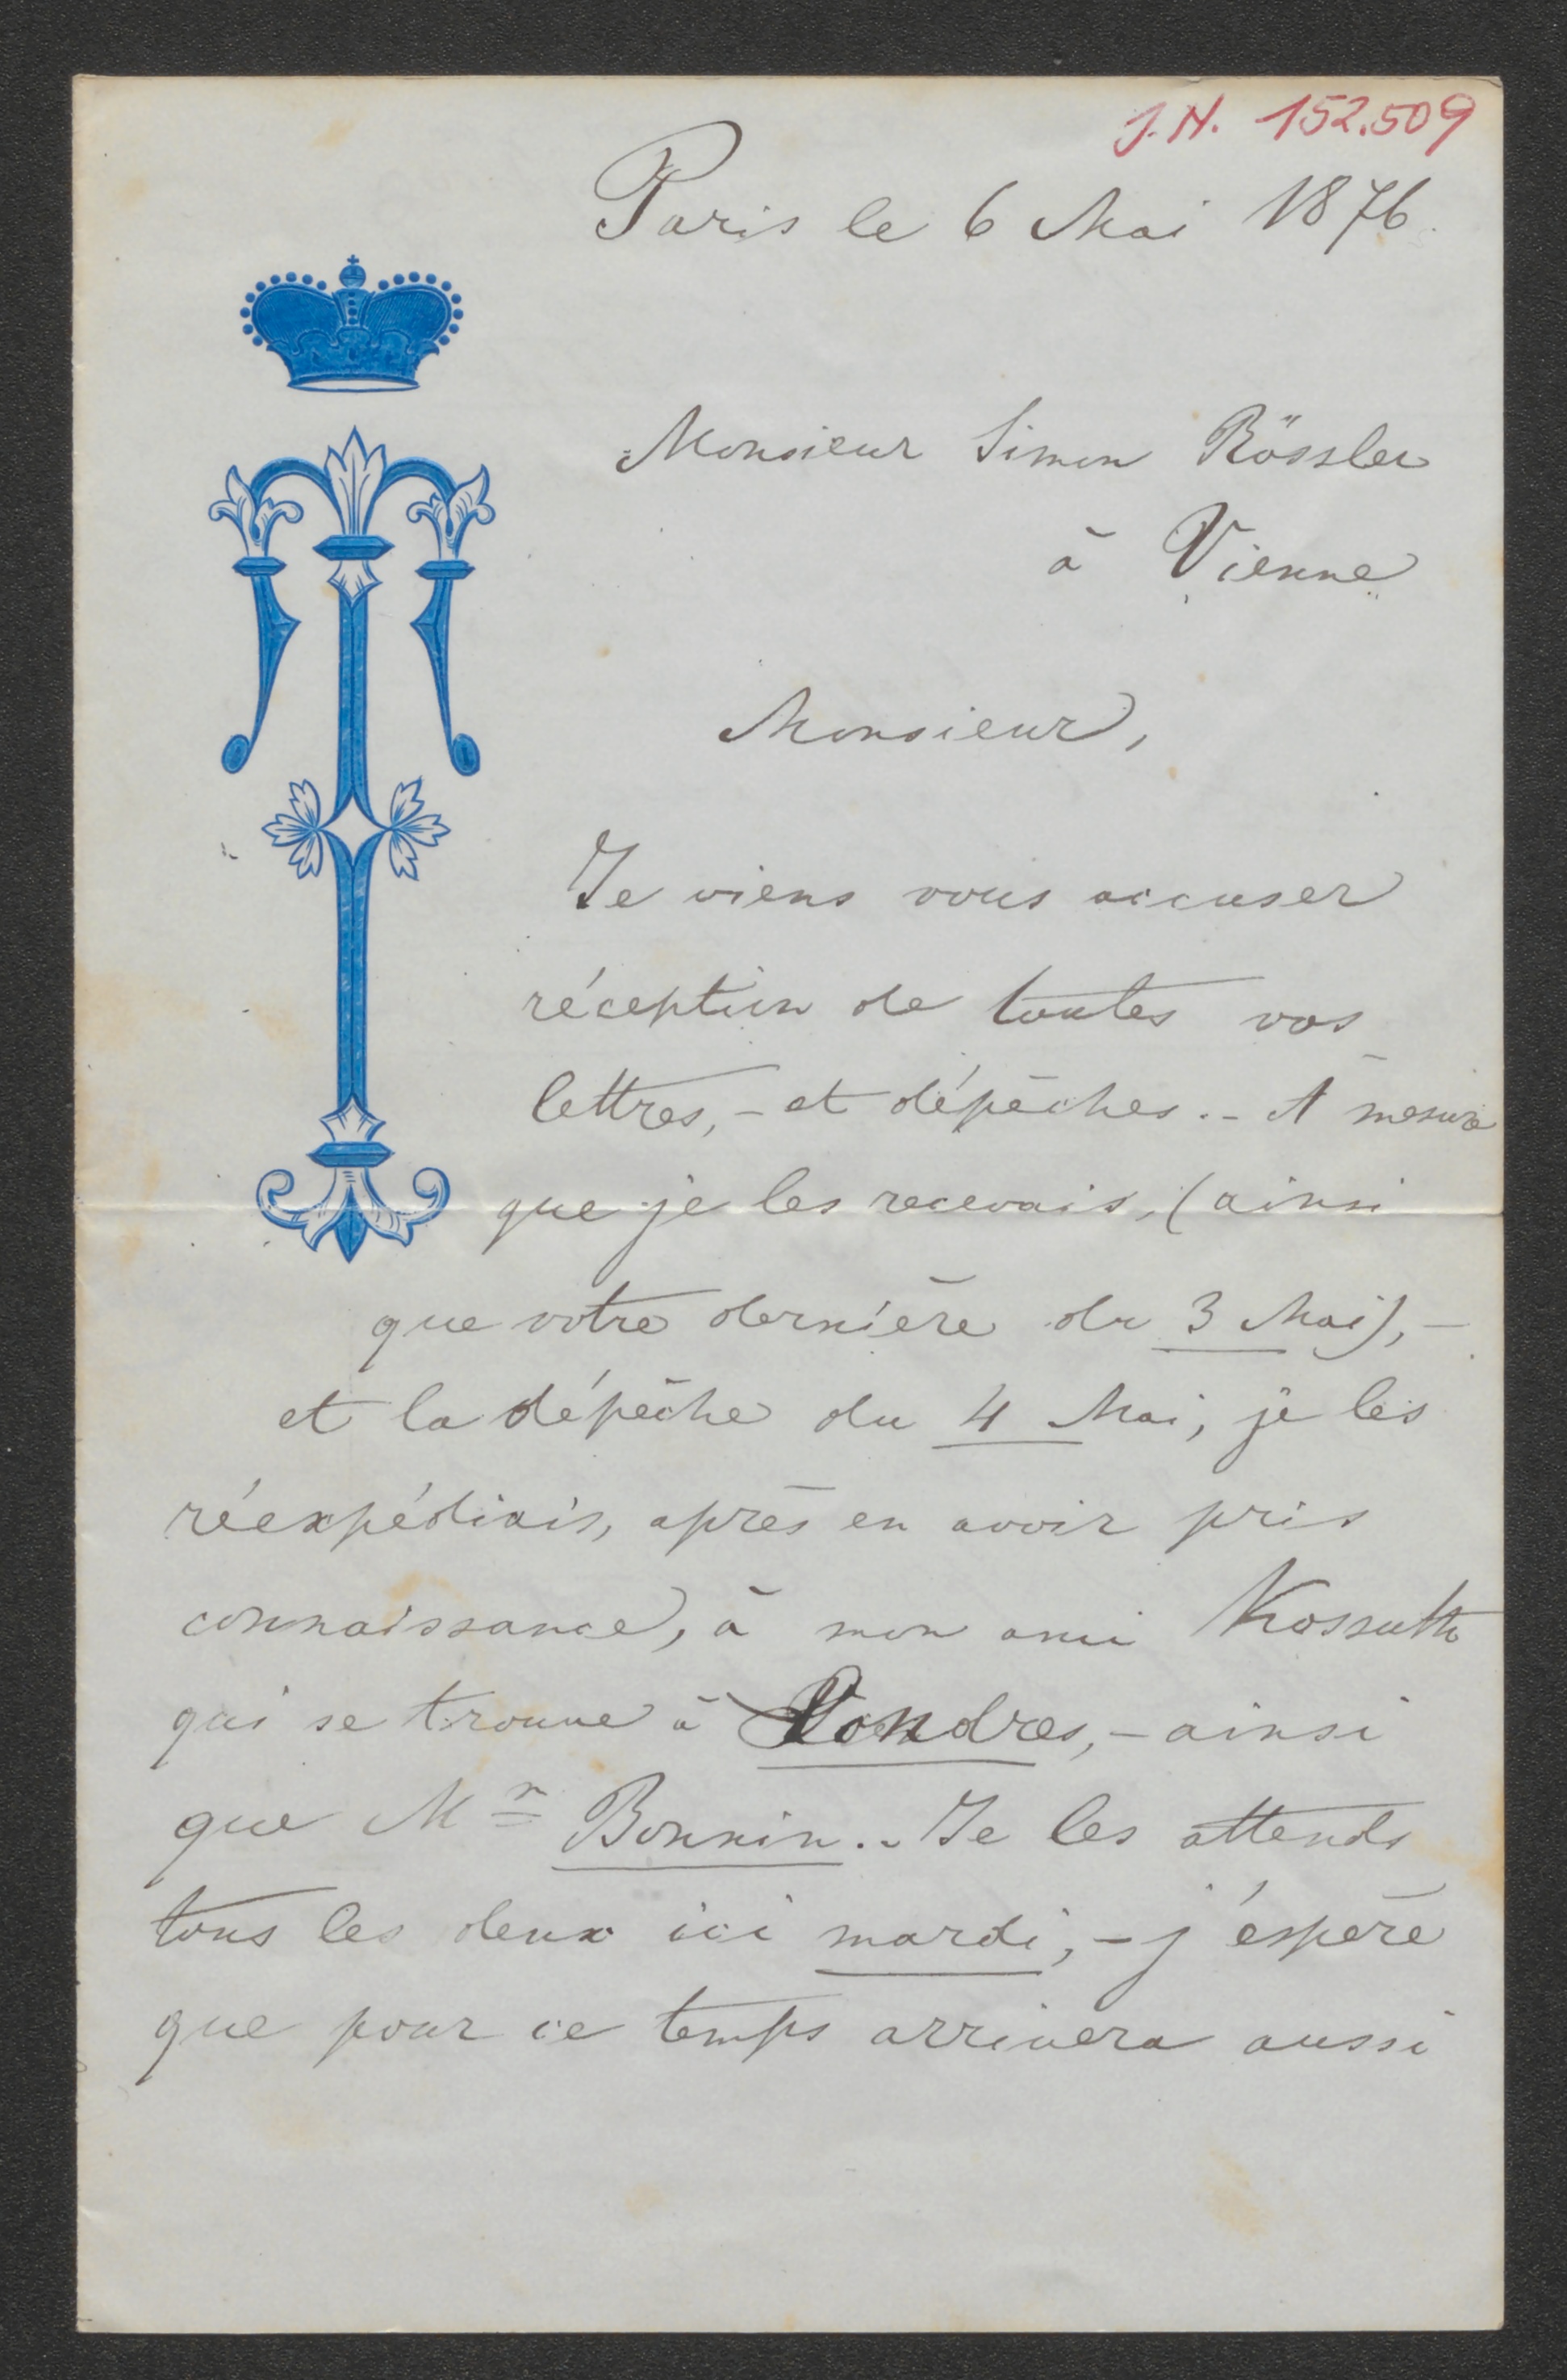 J.N. 152.509
Paris le 6 Mai 1876.
Monsieur Simon Rössler
à Vienne
Monsieur,
Je viens vous accuser
réception de toutes vos
lettres, – et dépêches. – A mesure
que je les recevais, (ainsi
que votre dernière du 3 Mai), –
et la dépêche du 4 Mai, je les
réexpédiais, après en avoir pris
connaissance, à mon ami Kossuth
qui se trouve à Londres, – ainsi
que Mr Bonnin. – Je les attends
tous les deux ici mardi, – j'éspère
que pour ce temps arrivera aussi